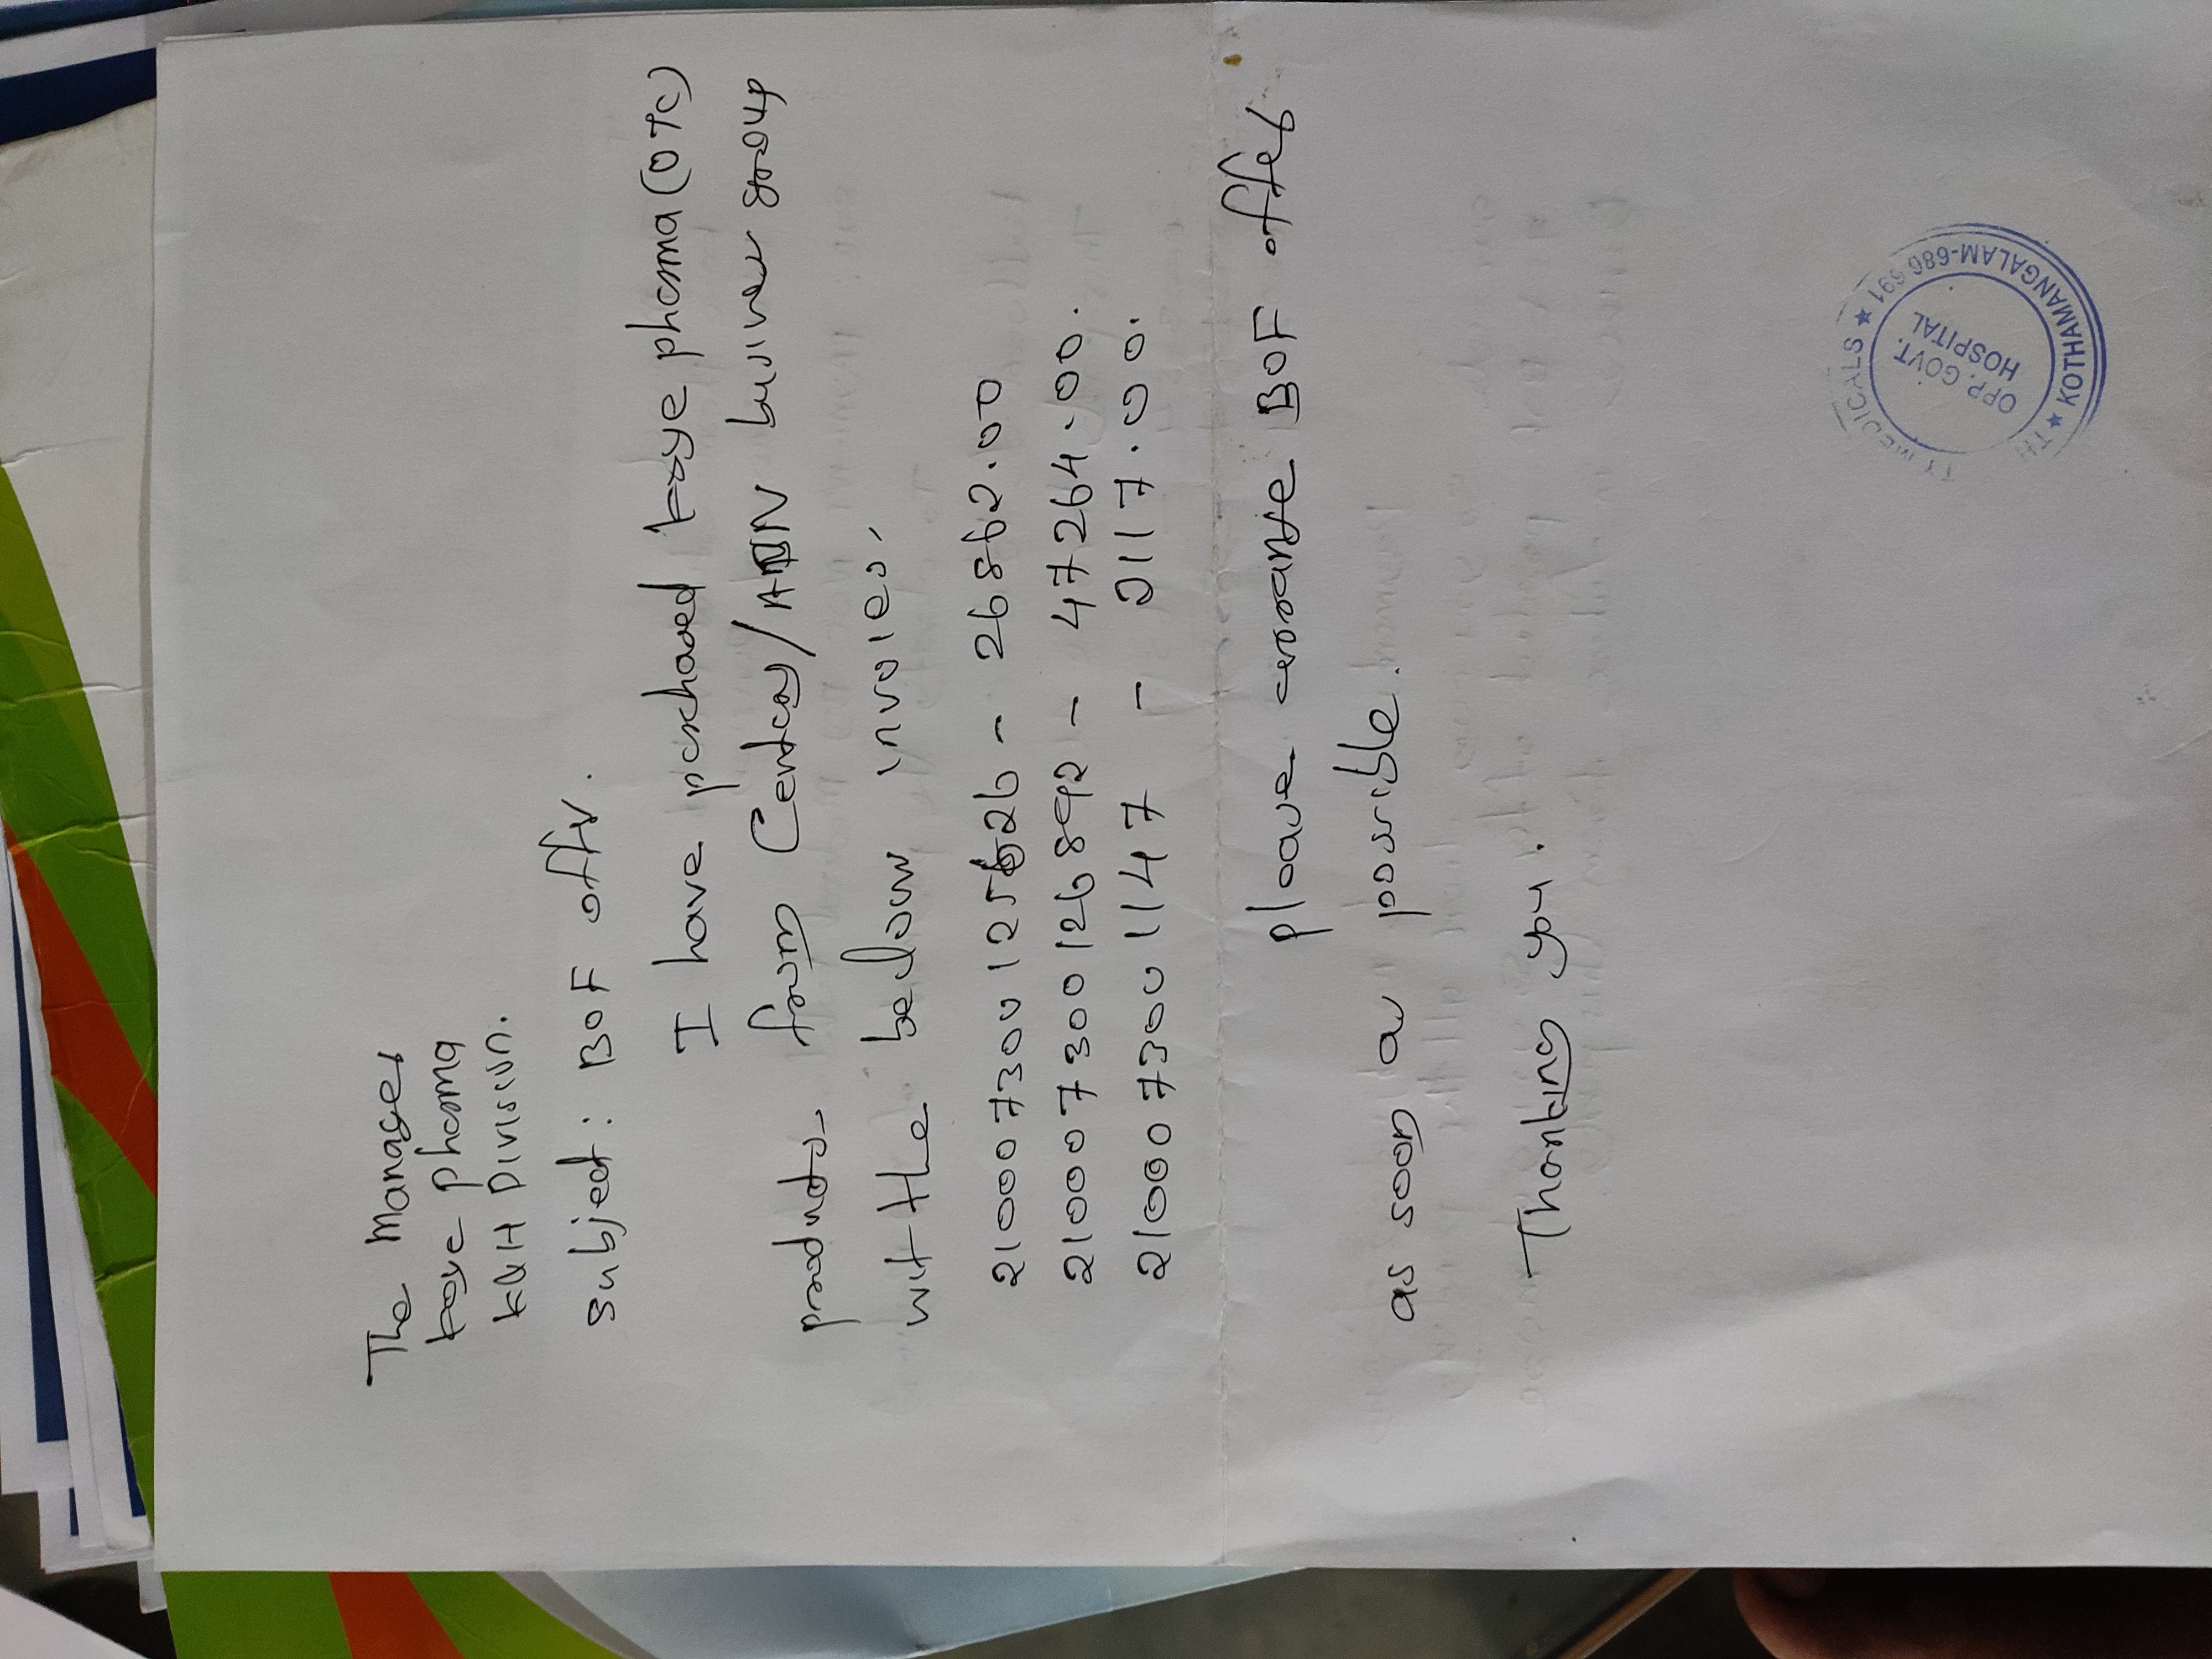 The Manager
Koye pharma
K&H Division.
Subject: BOF offer.
I have purchased Koye pharma (OTC)
products from Century/ADN business group
with the below invoices.
21000730012 26 - 26862.00
210007300126892 - 47264.00.
2100073001147 - 2117.00.
please arrange BOF offer
as soon as possible.
Thanking you.
TY MEDICALS ★ KOTHAMANGALAM-686 691 ★
OPP. GOVT.
HOSPITAL